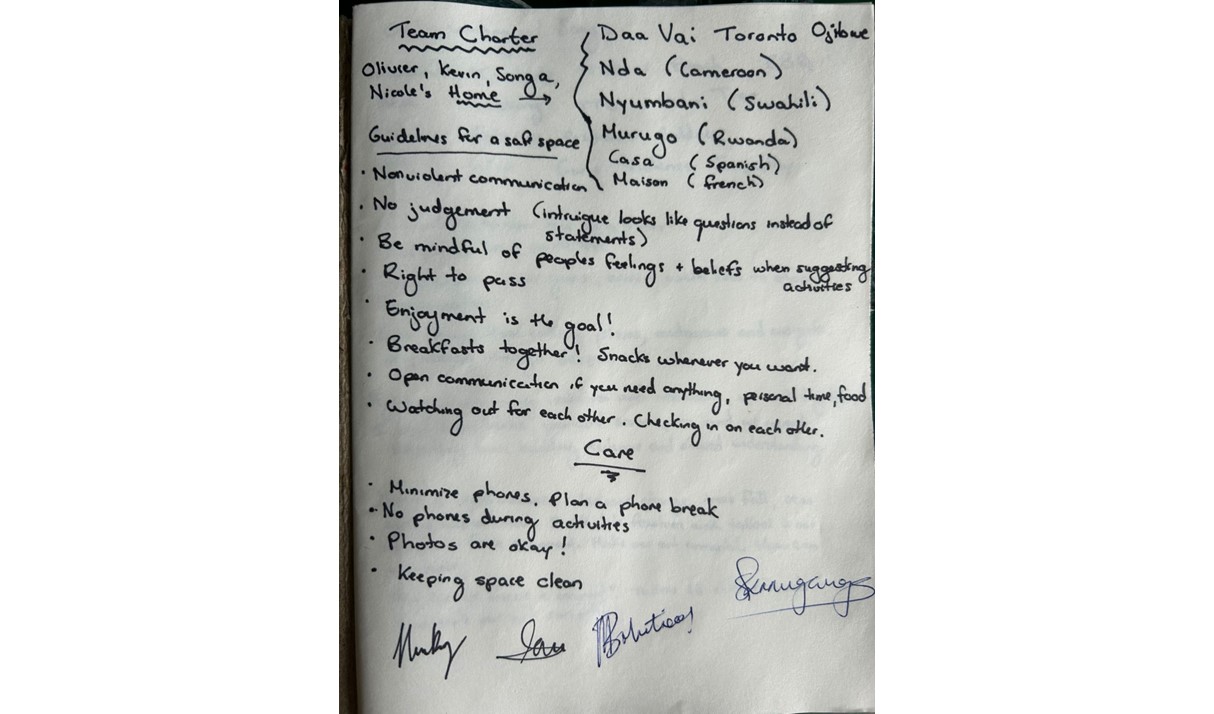 Team Charter
Olivier, Kevin, Songa,
Nicole's Home →
Daa Vai Toronto Ojibwe
Nda (Cameroon)
Nyumbani (Swahili)
Murugo (Rwanda)
Casa (Spanish)
Maison (french)
Guidelines for a safe space
• Nonviolent communication
• No judgement (intruigue looks like questions instead of
statements)
• Be mindful of peoples feelings + beliefs when suggesting
activities
• Right to pass
• Enjoyment is the goal!
• Breakfasts together! Snacks whenever you want.
• Open communication if you need anything, personal time, food
• Watching out for each other. Checking in on each other.
Care
• Minimize phones. Plan a phone break
• No phones during activities
• Photos are okay!
• Keeping space clean